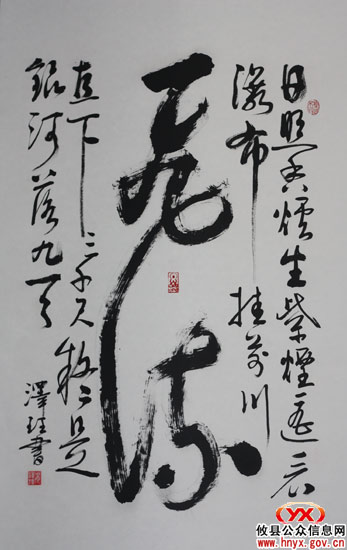 日照香爐生紫煙遙看
瀑布挂前川
飛流
直下三千尺疑是
銀河落九天
澤 書
YX
攸县公众信息网
www.hnyx.gov.cn